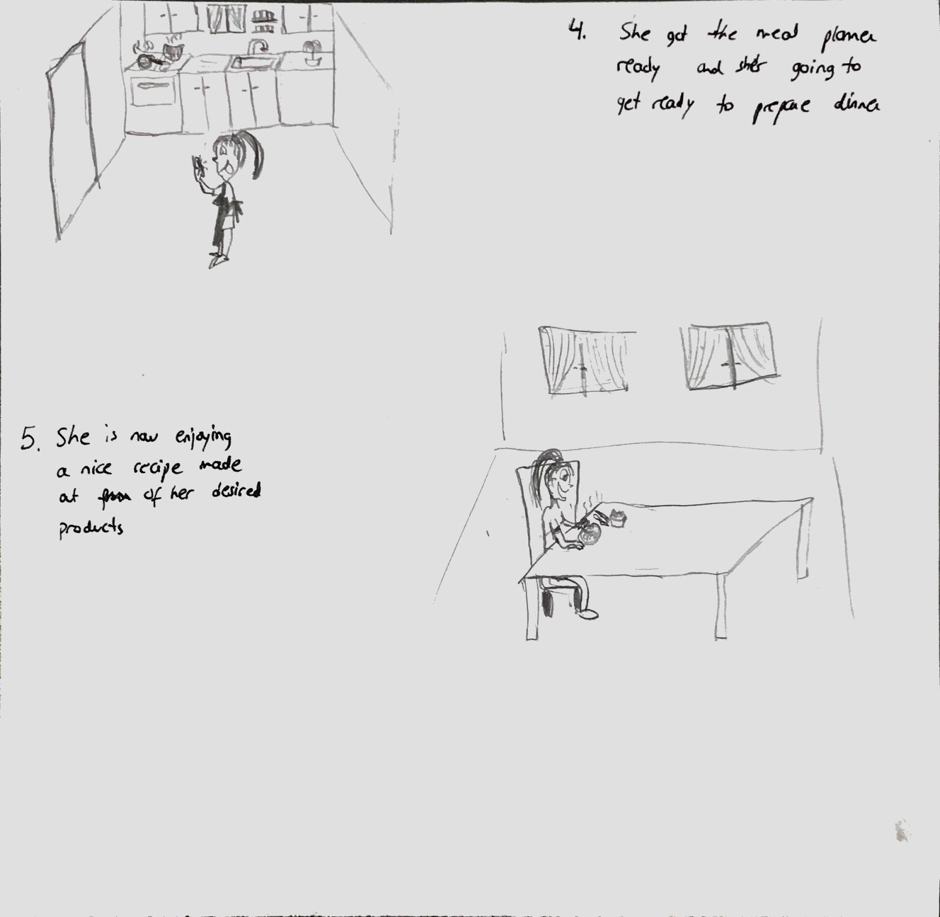 4. She got the meal planner
ready and she's going to
get ready to prepare dinner
5. She is now enjoying
a nice recipe made
out of her desired
products